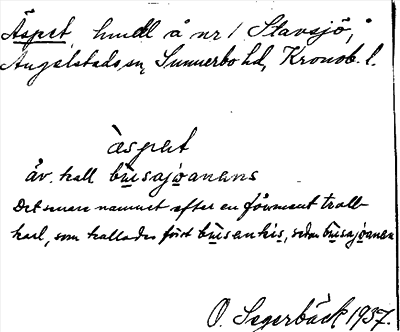 Äspet, hmdl å nr 1 Stavsjö,
Angelstads sn, Sunnerbo hd, Kronob. l.
àspet
äv. kall bùsajoanens
Det senare namnet efter en förment troll-
karl, som kallades först bùsenkis, sedan bùsajoanen
O. Segerbäck 1937.